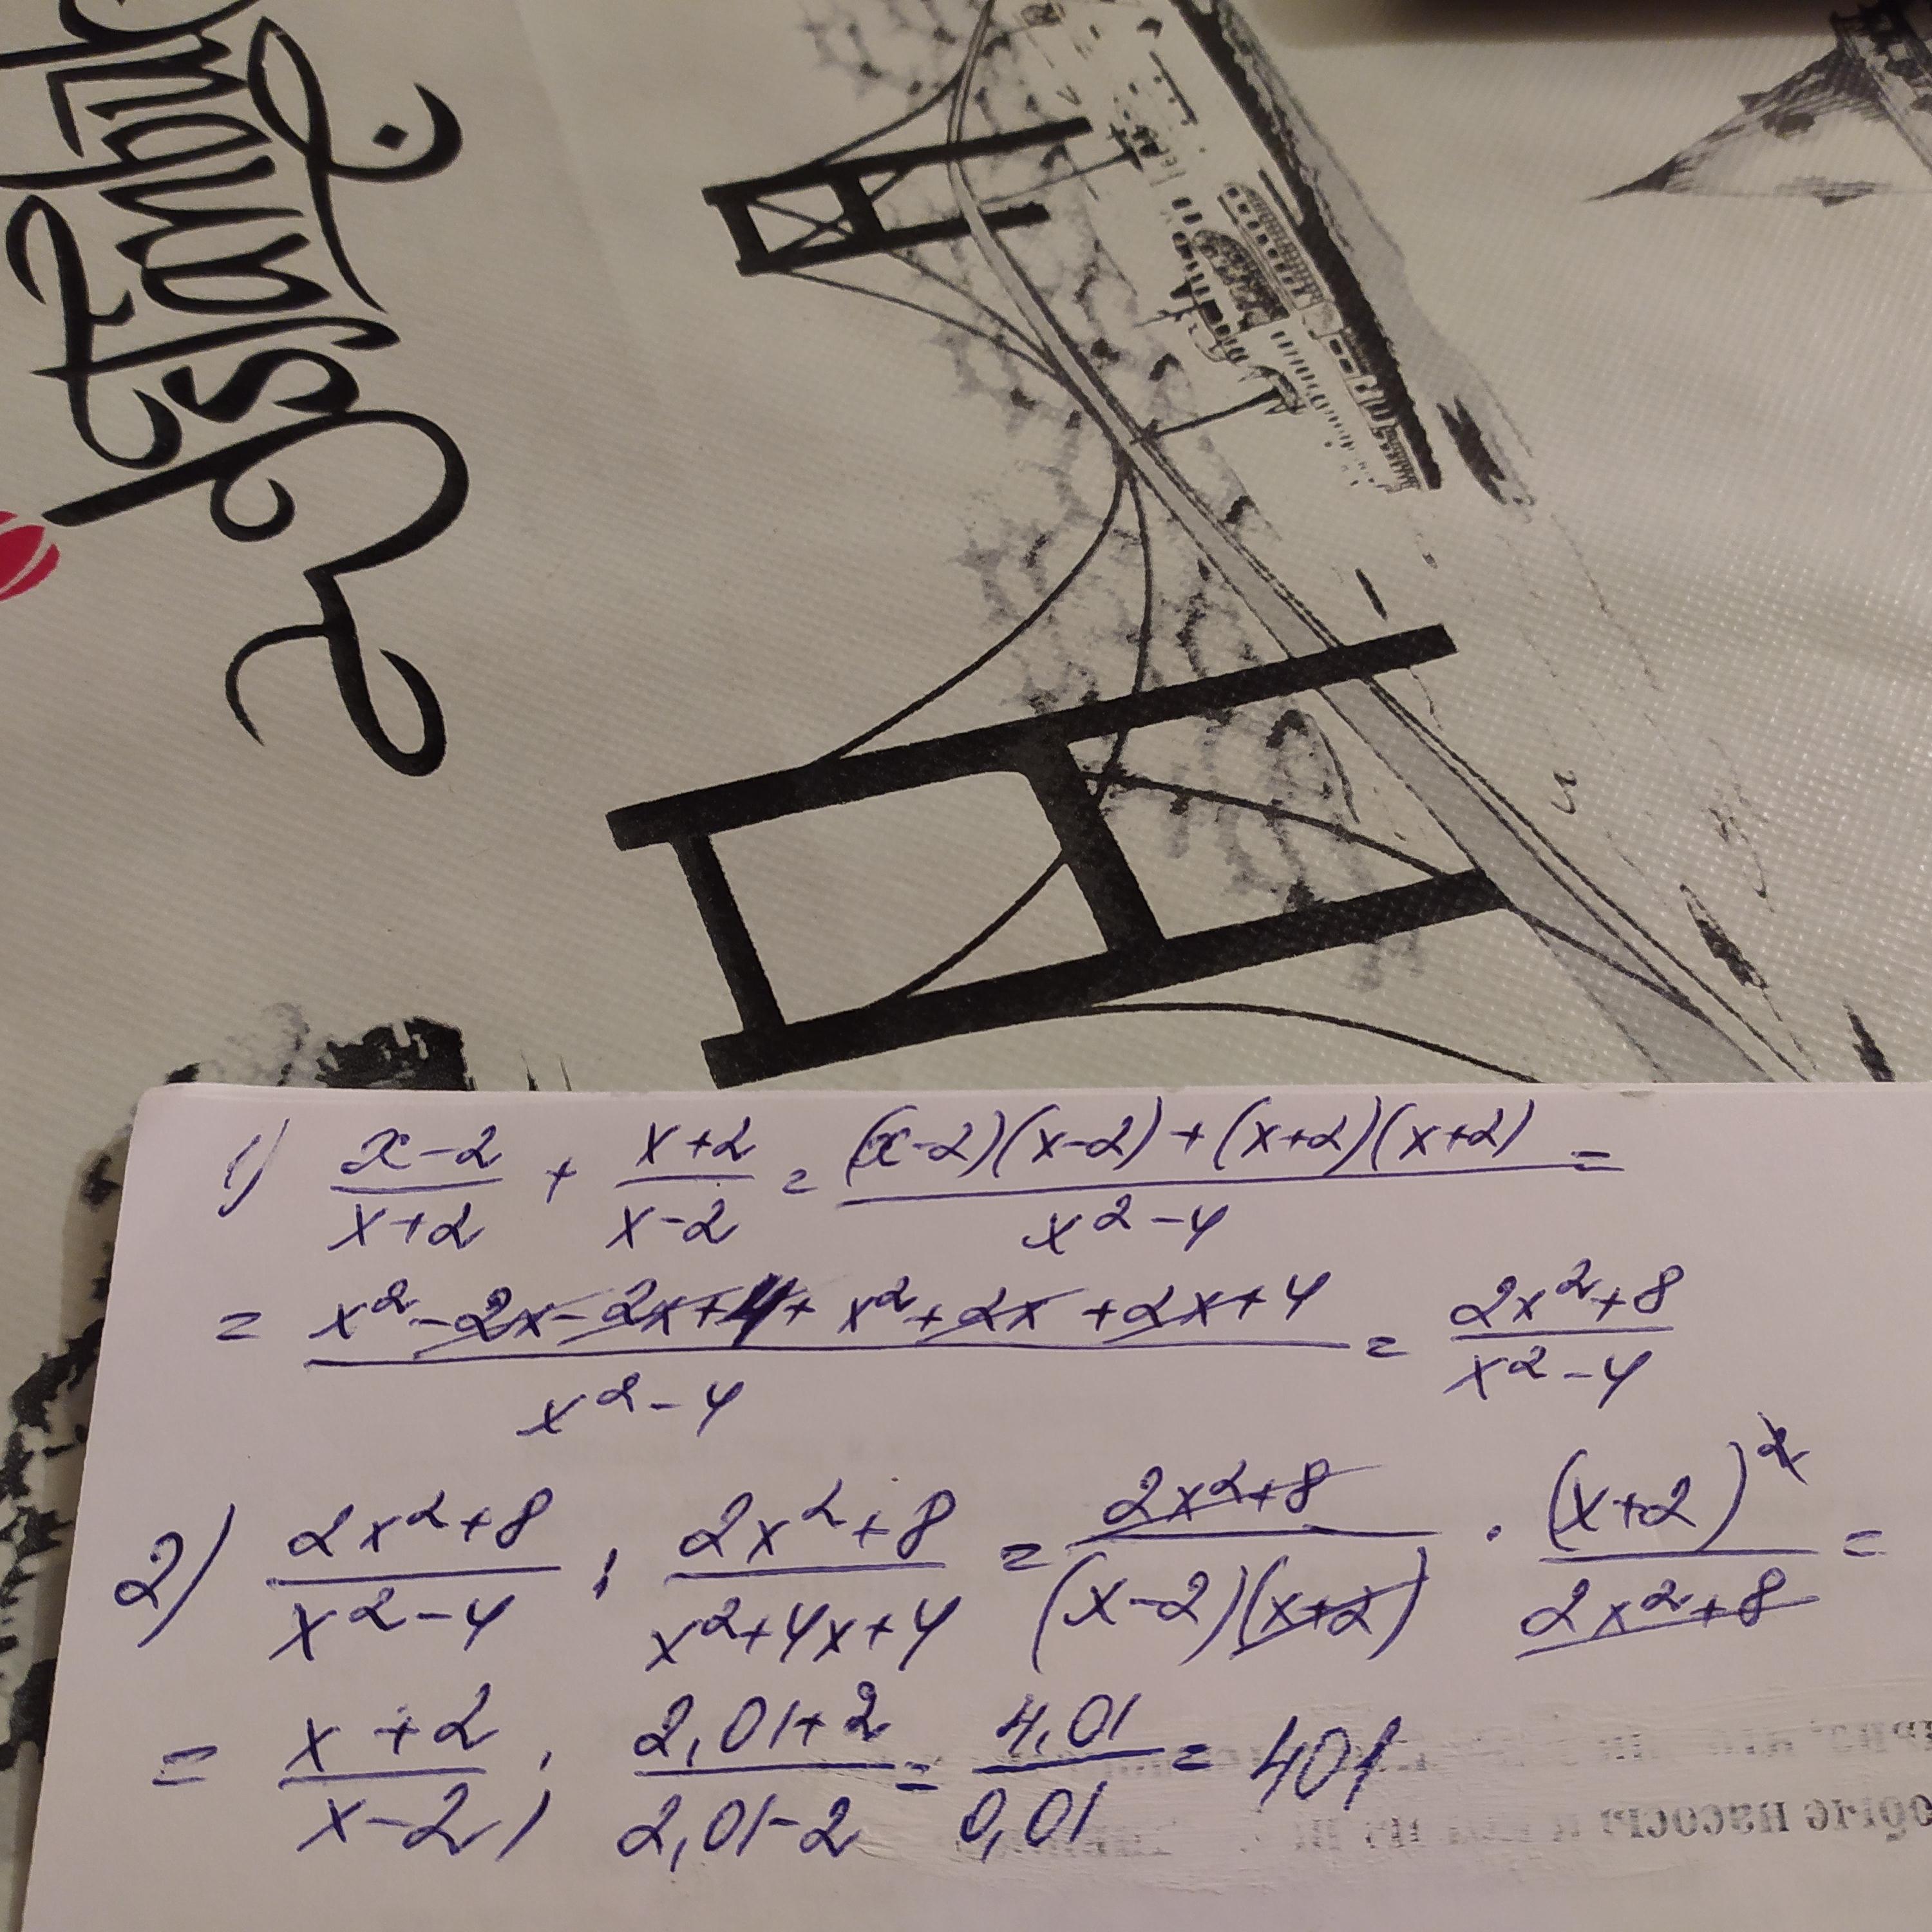 İstanbul
1) (x-2)/(x+2) + (x+2)/(x-2) = ((x-2)(x-2)+(x+2)(x+2))/(x²-4) =
= (x²-2x-2x+4+x²+2x+2x+4)/(x²-4) = (2x²+8)/(x²-4)
2) (2x²+8)/(x²-4) : (2x²+8)/(x²+4x+4) = (2x²+8)/((x-2)(x+2)) · (x+2)²/(2x²+8) =
= (x+2)/(x-2); (2,01+2)/(2,01-2) = 4,01/0,01 = 401